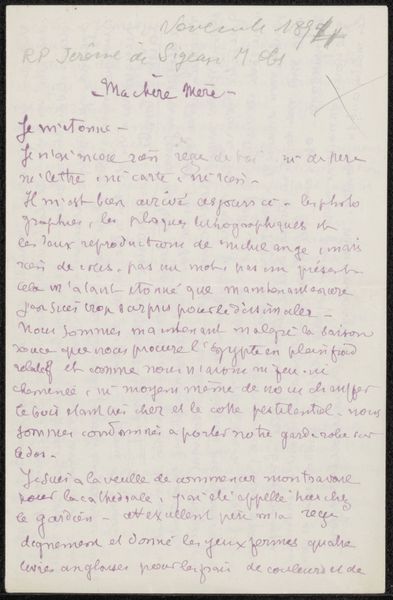 Novembre 1894
RP Jérôme de Sigean M Obs
Ma chère Mère -
Je m'étonne -
Je n'ai encore rien reçu de toi ni de père
ni lettre, ni carte, ni rien.
Il m'est bien arrivé ces jours ci - les photo
graphies, les plaques lithographiques et
les deux reproductions de michel ange, mais
rien de vous. pas un mot, pas un présent
cela m'a tant étonné que maintenant encore
j'en suis trop surpris pour le dissimuler -
Nous sommes maintenant malgré la saison
douce que nous procure l'Egypte en plein froid
relatif et comme nous n'avons ni feu, ni
cheminée, ni moyens même de nous chauffer
le bois étant très cher et le coke pestilentiel. nous
sommes condamnés à porter notre garde robe sur
le dos -
Je suis à la veille de commencer mon travail
pour la cathédrale, j'ai été appelé hier chez
le gardien - cet excellent père m'a reçu
dignement et donné les yeux fermés quatre
livres anglaises pour les frais de couleurs et de